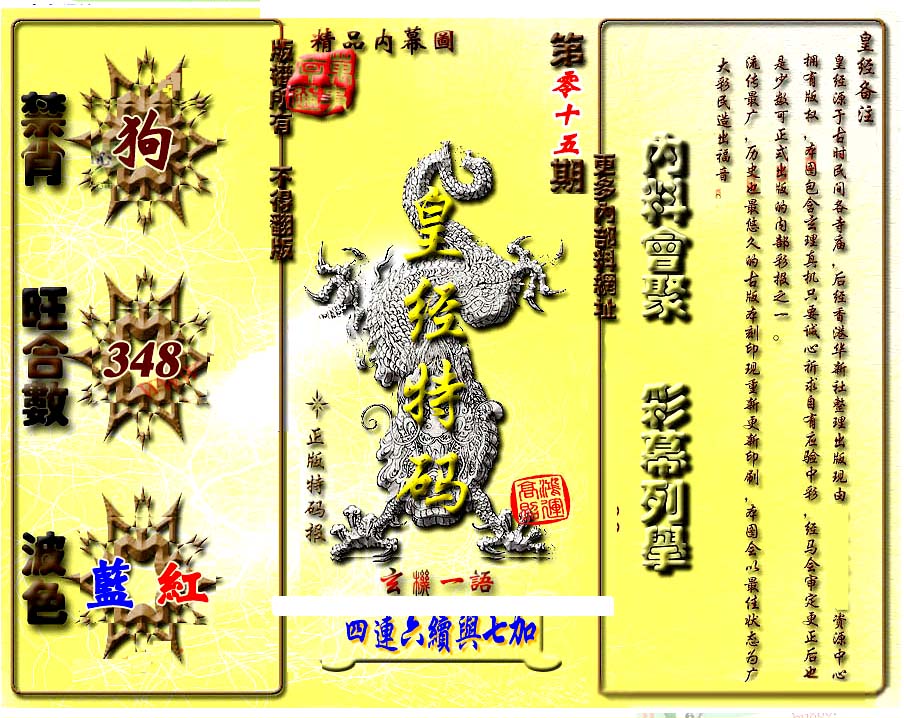 精品内幕圖
第零十五期
版權所有 不得翻版
更多内部料網址
禁肖
狗
旺合數
348
波色
藍 紅
皇经特码
正版特码报
鴻運高照
玄機一語
四連六續與七加
内料會聚 彩幕列舉
皇经备注
皇经源于古时民间各寺庙，后经香港华新社整理出版现由 资源中心
拥有版权，本图包含玄理真机只要诚心祈求自有应验中彩，经马会审定更正后也
是少数可正式出版的内部彩报之一。
流传最广，历史也最悠久的古版本刻印现重新更新印刷，本图会以最佳状态为广
大彩民造出福音